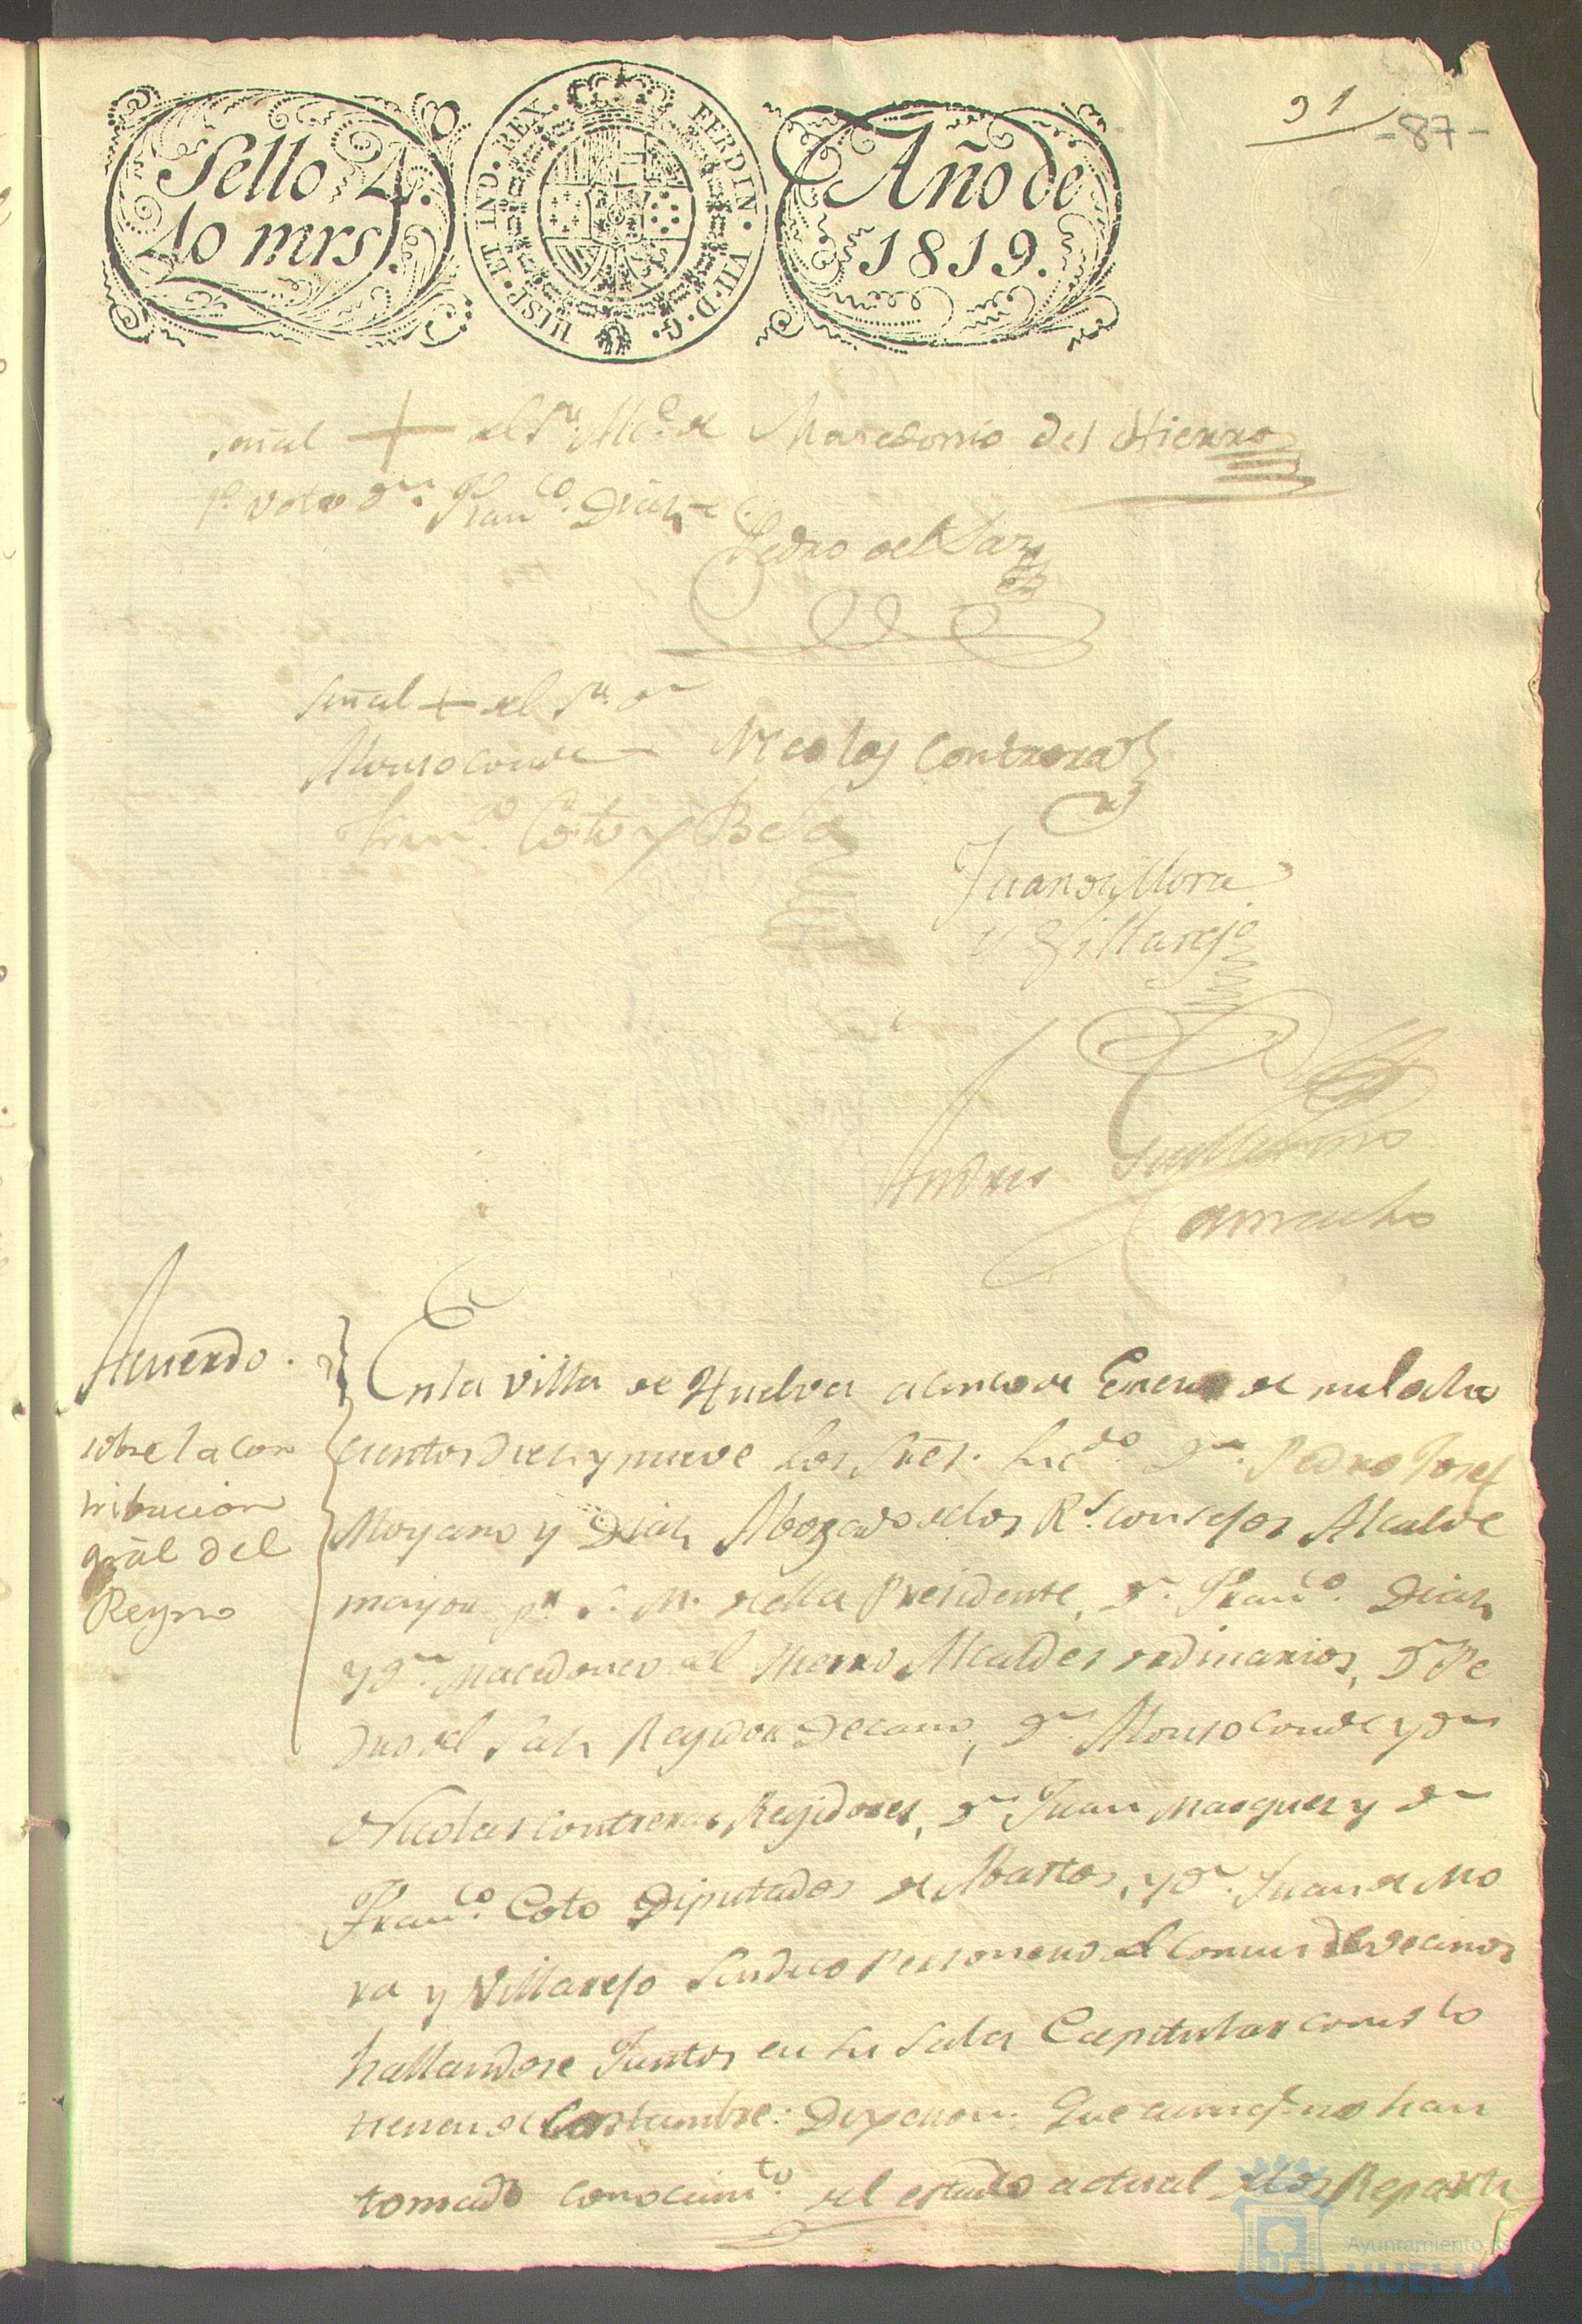 91
-87-
Sello 4.
40 mrs.
HISP. ET IND. REX. FERDIN. VII. D. G.
Año de
1819.
señal + del Sr. de Macedonio del Hierro
1º voto Dn. Franco. Diaz
Pedro del Saz
Señal + del Sr. Dn
Alonso Conde Nicolas Contreras
Franco. Coto y Bela
Juan de Mora
y Villarejo
Andres Guillermo
Camacho
Acuerdo.
sobre la con
tribucion
gral del
Reyno
En la villa de Huelva a cinco de Enero de mil ocho
cientos diez y nueve los Sres. Licdo. Dn. Pedro Josef
Moyano y Diaz Abogado de los Rs. consejos Alcalde
mayor pr. S. M. de ella Presidente, Dn. Franco. Diaz
y Dn. Macedonio del Hierro Alcaldes ordinarios, Dn Pe
dro del Saz Regidor Decano, Dn. Alonso Conde y Dn
Nicolas Contreras Regidores, Dn Juan Marquez y Dn
Franco. Coto Diputados de Abastos, y Dn. Juan de Mo
ra y Villarejo Sindico Personero del Comun de vecinos
hallandose Juntos en su Sala Capitular como lo
tienen de Costumbre: Dixeron: Que aunq. no han
tomado conocimto. del estado actual de los Reparti
Ayuntamiento de
HUELVA